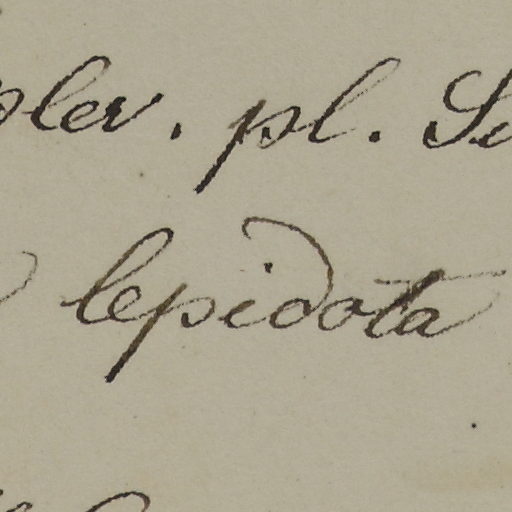 pler. pl. Su
lepidota